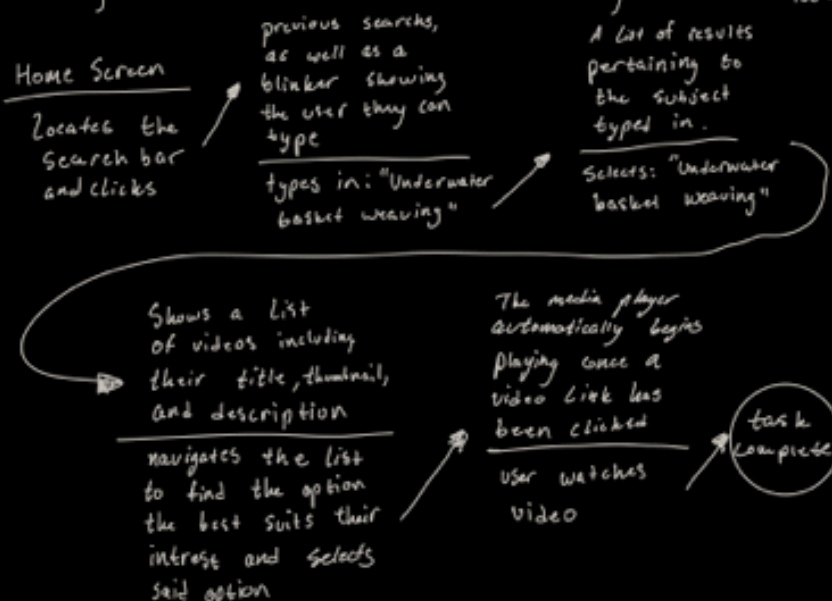 Home Screen
Locates the
search bar
and clicks
previous searchs,
as well as a
blinker showing
the user they can
type
types in: "Underwater
basket weaving"
A List of results
pertaining to
the subject
typed in.
Selects: "Underwater
basket weaving"
Shows a List
of videos including
their title, thumbnail,
and description
navigates the list
to find the option
the best suits their
intrest and selects
said option
The media player
automatically begins
playing once a
video link has
been clicked
user watches
video
task
complete